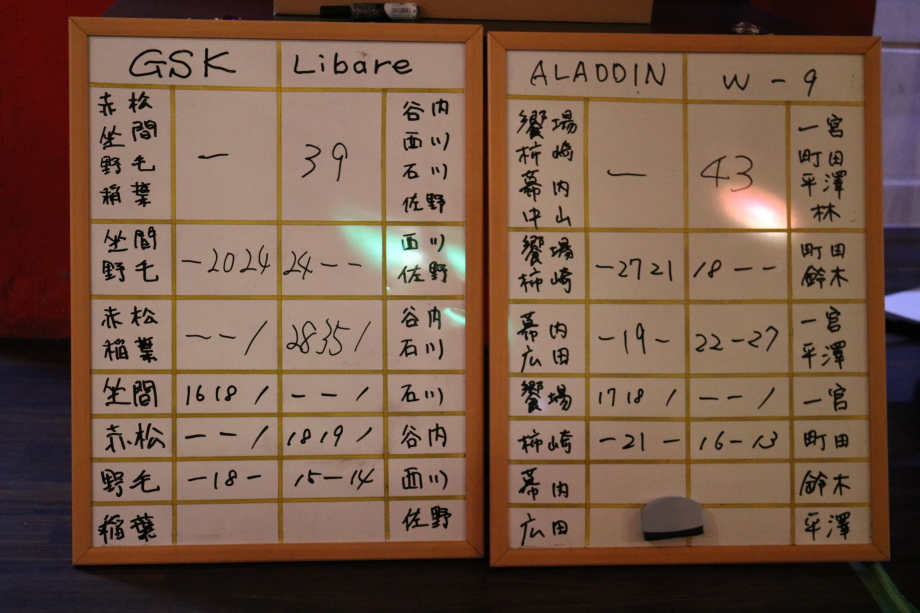 GSK Libare
赤松 谷内
坐間 西川
野毛 一 39 石川
稲葉 佐野
坐間 西川
野毛 -2024 24-- 佐野
赤松 谷内
稲葉 --/ 28351 石川
坐間 1618/ --/ 石川
赤松 --/ 1819/ 谷内
野毛 -18- 15-14 西川
稲葉 佐野
ALADDIN W-9
饗場 一宮
柿崎 一 43 町田
幕内 平澤
中山 林
饗場 町田
柿崎 -2721 18-- 鈴木
幕内 一宮
広田 -19- 22-27 平澤
饗場 1718/ --/ 一宮
柿崎 -21- 16-13 町田
幕内 鈴木
広田 平澤